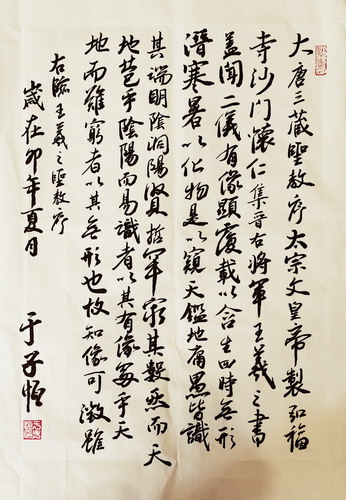 大唐三藏聖教序太宗文皇帝製弘福
寺沙門懷仁集晉右將軍王羲之書
盖聞二儀有像顯覆載以含生四時無形
潛寒暑以化物是以窺天鑑地庸愚皆識
其端明陰洞陽賢哲罕窮其數然而天
地苞乎陰陽而易識者以其有像處乎天
地而難窮者以其無形也故知像可徵雖
右臨王羲之聖教序
歲在卯年夏月
于子恒